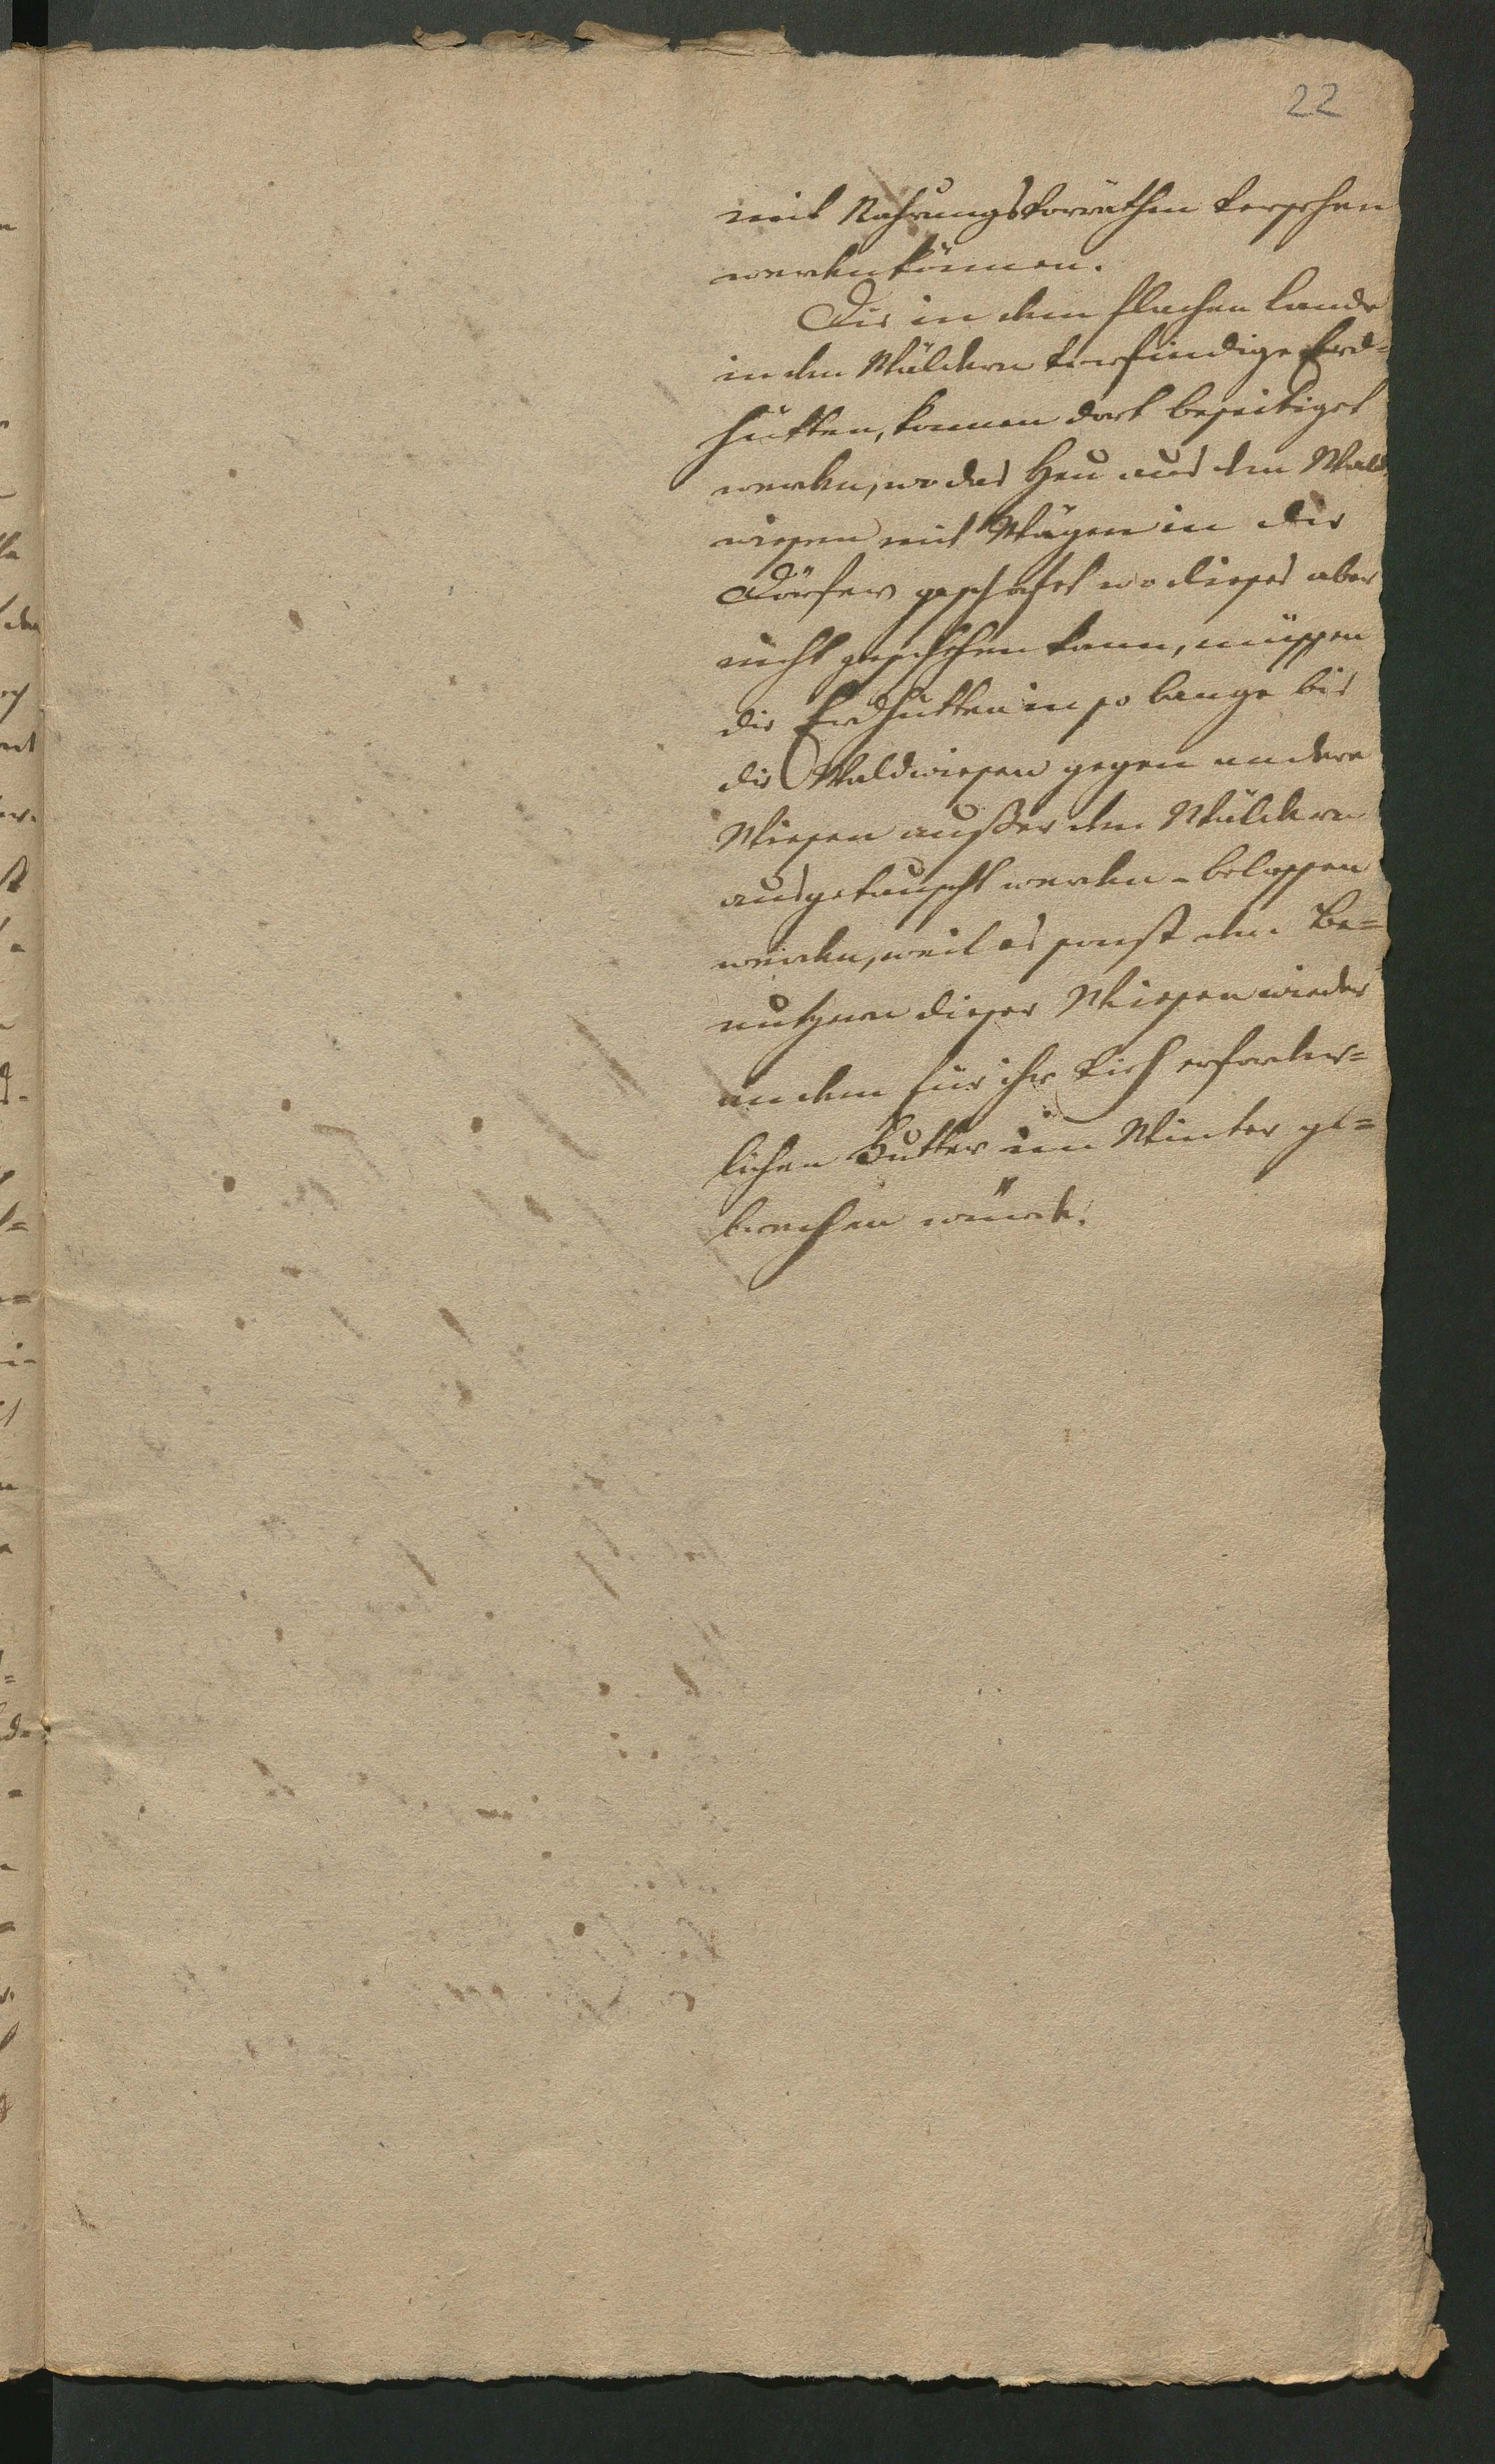 22
mit Nahrungsvorräthen versehen
werden können.
Die in dem flachen Lande
in den Wäldern vorfindige Erd=
hütten, können dort beseitiget
werden, wo das Heu aus den Wald
wiesen mit Wägen in die
Dörfer geschafet wo dieses aber
nicht geschehen kann, müssen
die Erdhütten in so lange bis
die Waldwiesen gegen andere
Wiesen außer den Wäldern
ausgetauscht werden - belassen
werden, weil es sonst den Be=
nutzern dieser Wiesen wieder
an dem für ihr Vieh erforder=
lichen Futter im Winter ge=
brechen würde.